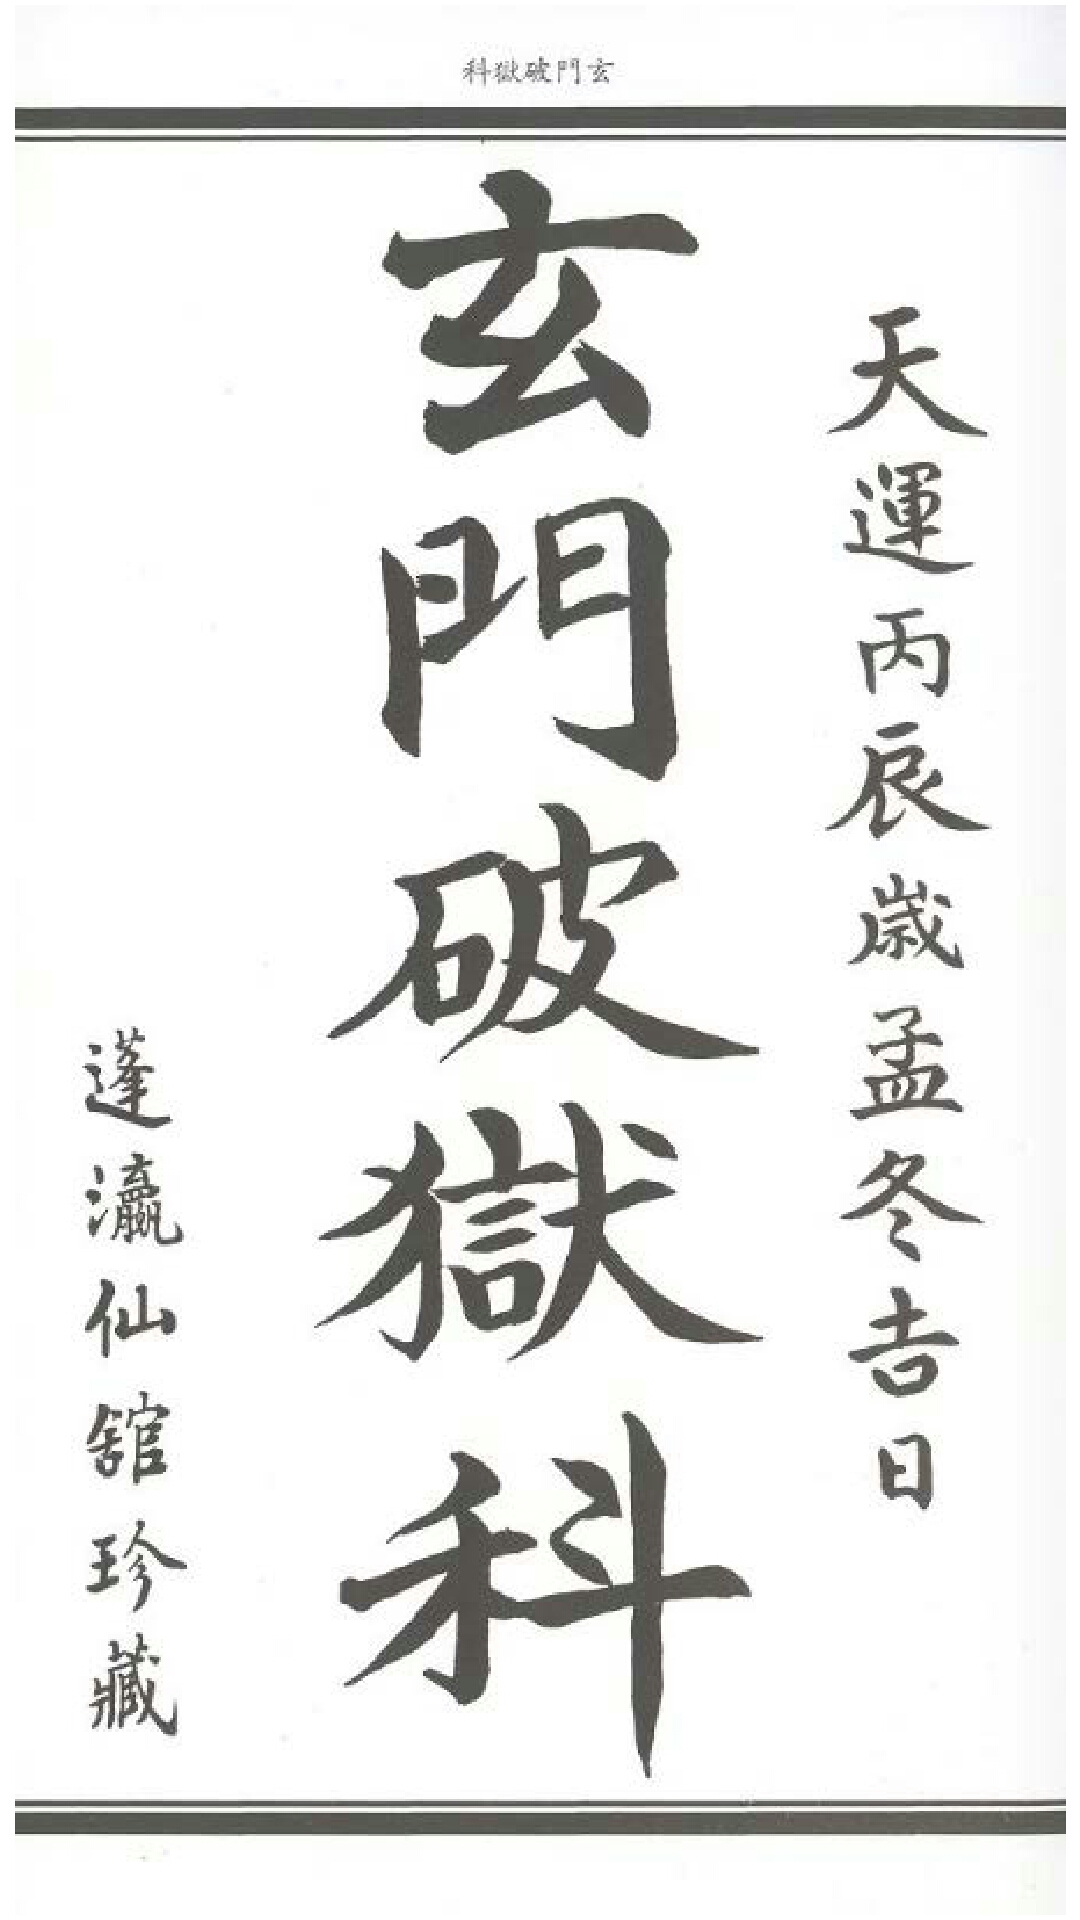 玄門破獄科
天運丙辰歲孟冬吉日
玄門破獄科
蓬瀛仙舘珍藏